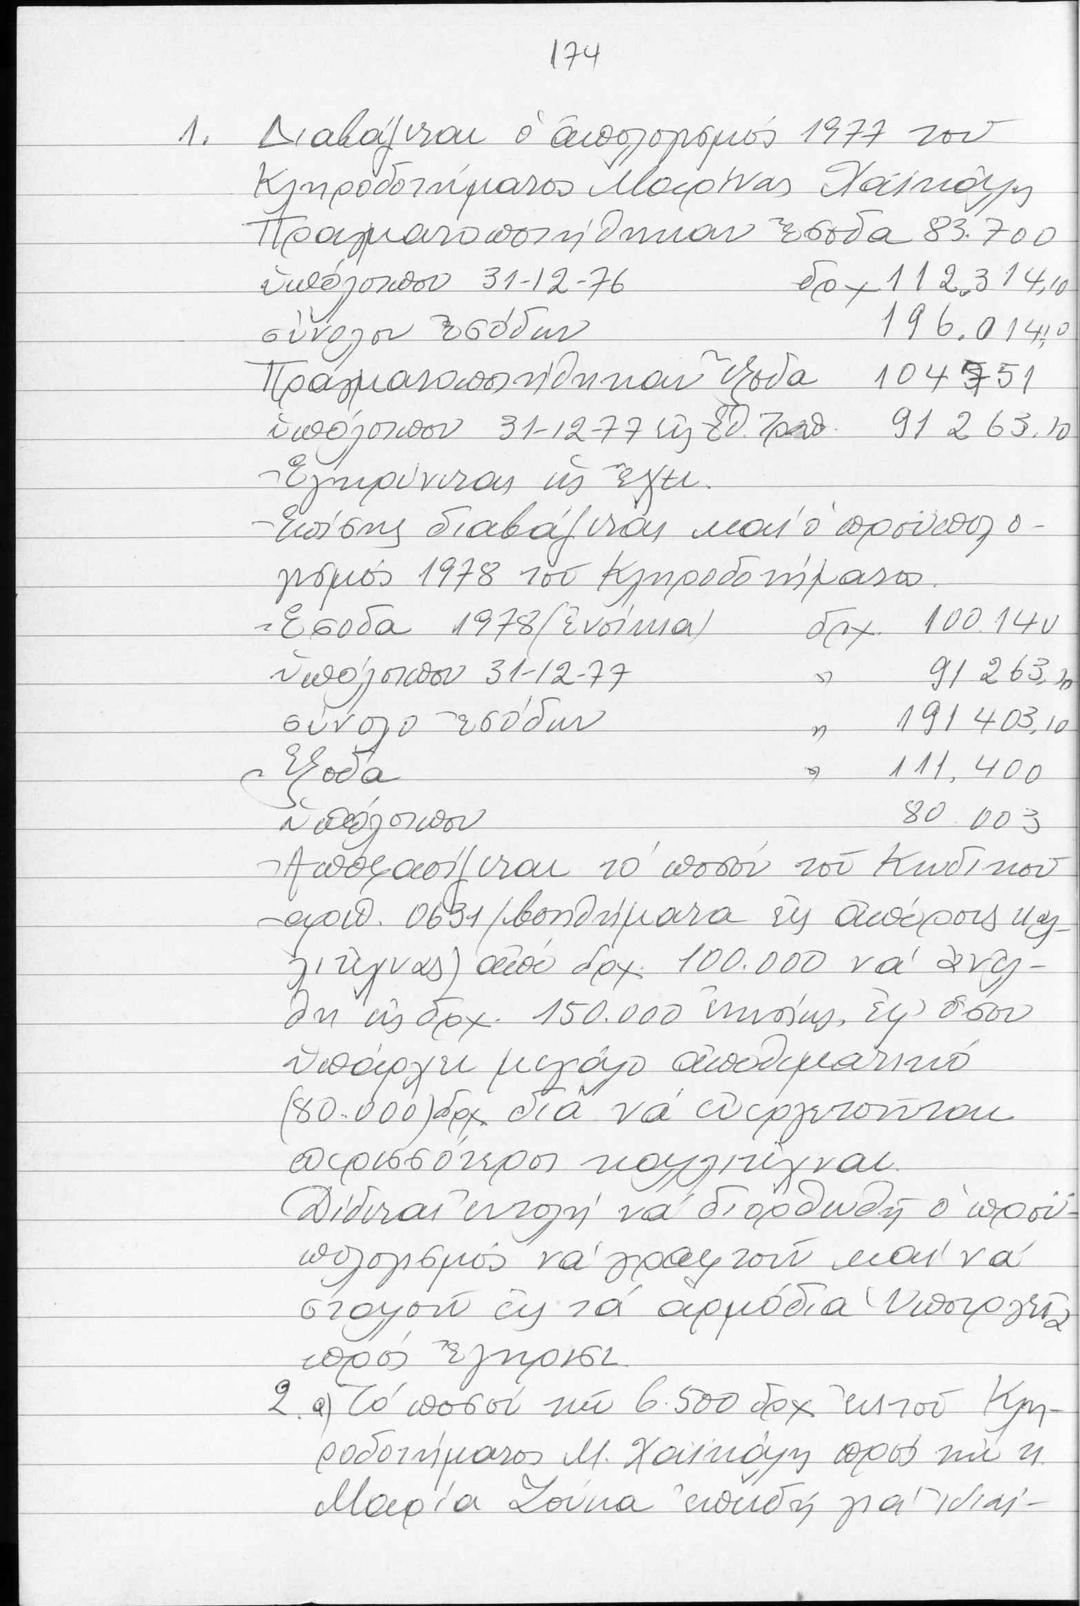 174
1. Διαβάζεται ὁ ἀπολογισμός 1977 τοῦ
Κληροδοτήματος Μαρίνας Χαϊκάλη
Πραγματοποιήθηκαν ἔσοδα 83.700
ὑπόλοιπον 31-12-76 δρχ 112.314,10
σύνολον ἐσόδων 196.014,10
Πραγματοποιήθηκαν ἔξοδα 104751
ὑπόλοιπον 31-12-77 εἰς Ἐθ. Τραπ. 91263,10
Ἐγκρίνεται ὡς ἔχει.
-Ἐπίσης διαβάζεται καί ὁ προϋπολο-
γισμός 1978 τοῦ Κληροδοτήματος.
-Ἔσοδα 1978 (ἐνοίκια) δρχ. 100.140
ὑπόλοιπον 31-12-77 " 91263,10
σύνολο ἐσόδων " 191403,10
Ἔξοδα " 111.400
ὑπόλοιπον 80.003
-Ἀποφασίζεται τό ποσόν τοῦ Κωδικοῦ
ἀριθ. 0631 (βοηθήματα εἰς ἀπόρους καλ-
λιτέχνας) ἀπό δρχ. 100.000 νά ἀνέλ-
θη εἰς δρχ. 150.000 ἐτησίως, ἐφ' ὅσον
ὑπάρχει μεγάλο ἀποθεματικό
(80.000) δρχ. διά νά εὐεργετοῦνται
περισσότεροι καλλιτέχναι.
Δίδεται ἐντολή νά διορθωθῆ ὁ προϋ-
πολογισμός νά γραφτοῦν καί νά
σταλοῦν εἰς τά ἁρμόδια Ὑπουργεῖα
πρός ἔγκρισι.
2. α) Τό ποσόν τῶν 6.500 δρχ ἐκ τοῦ Κλη-
ροδοτήματος Μ. Χαϊκάλη πρός τήν κ.
Μαρία Ζούκα ἐπειδή γιά ἰδιαί-